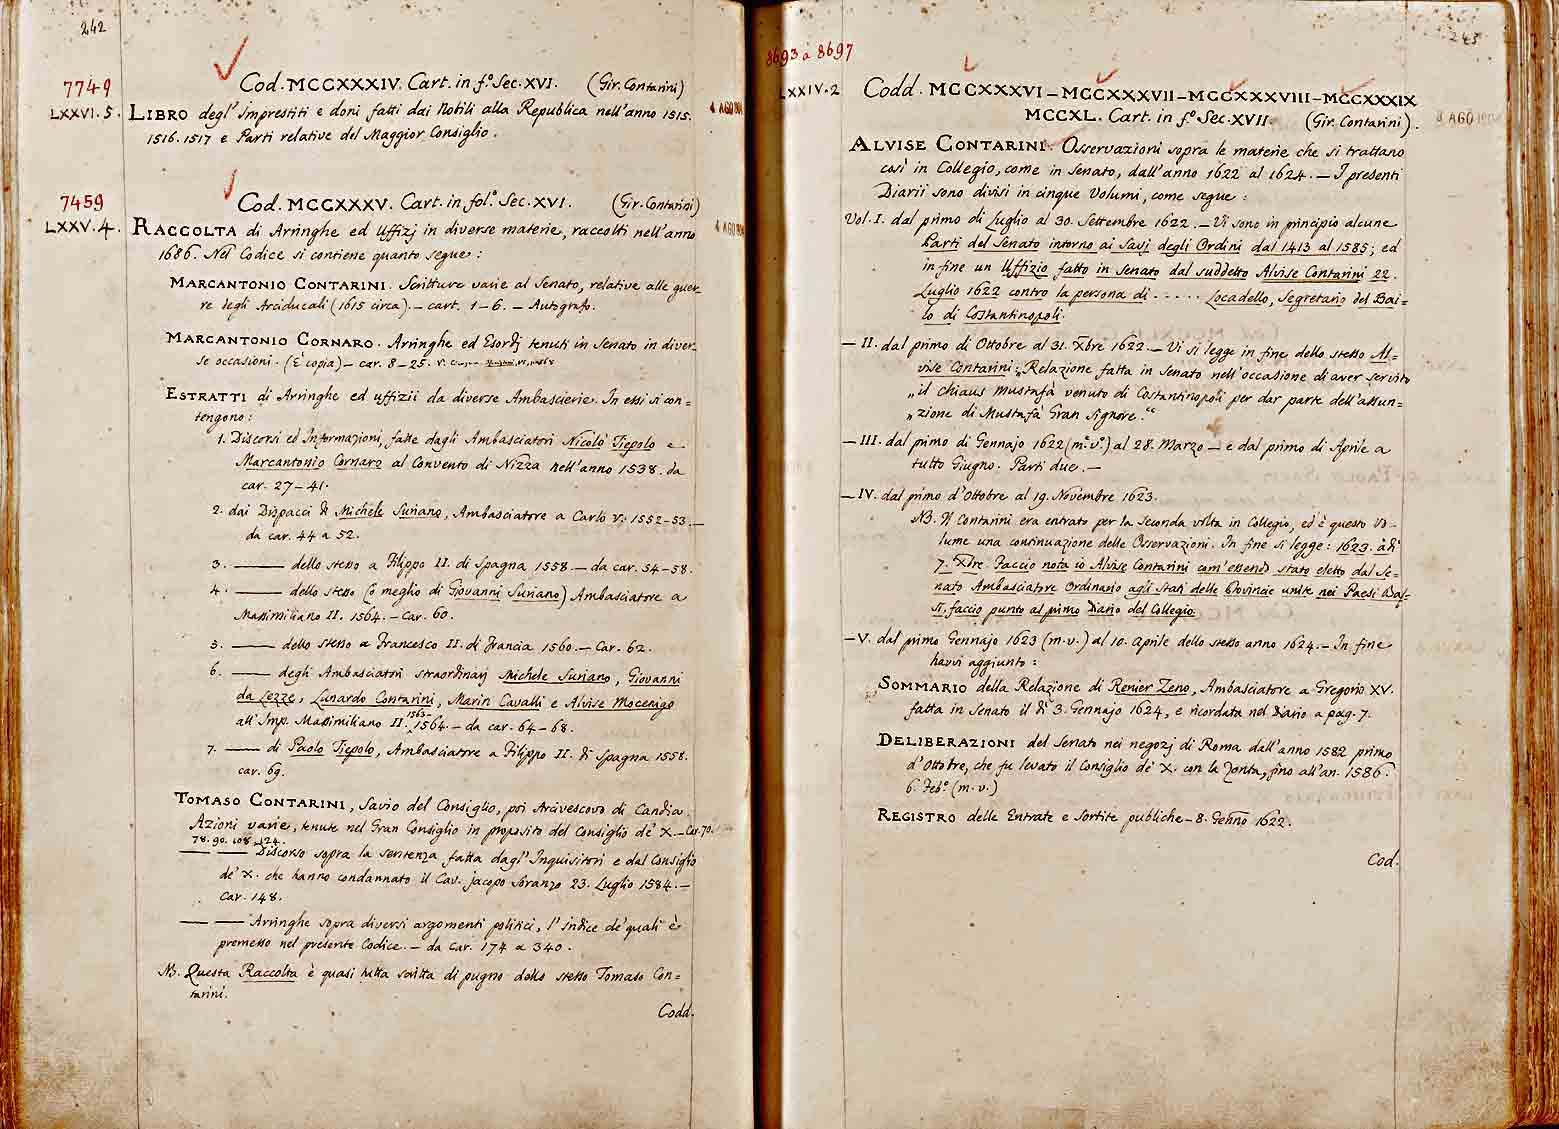 242
7749
Cod. MCCXXXIV. Cart. in fº. Sec. XVI. (Gir. Contarini)
LXXVI. 5. LIBRO degl' Imprestiti e doni fatti dai Nobili alla Republica nell'anno 1515. 4 AGO
1516. 1517 e Parti relative del Maggior Consiglio.
7459
Cod. MCCXXXV. Cart. in folº. Sec. XVI. (Gir. Contarini)
LXXV. 4. RACCOLTA di Arringhe ed Uffizj in diverse materie, raccolti nell'anno 4 AGO
1686. Nel Codice si contiene quanto segue:
MARCANTONIO CONTARINI. Scritture varie al Senato, relative alle guer-
re degli Arciducali (1615 circa). – cart. 1–6. – Autografo.
MARCANTONIO CORNARO. Arringhe ed Esordj tenuti in Senato in diver-
se occasioni. (È copia) – car. 8–25.
ESTRATTI di Arringhe ed uffizii da diverse Ambascierie. In essi si con-
tengono:
1. Discorsi ed Informazioni, fatte dagli Ambasciatori Nicolò Tiepolo e
Marcantonio Cornaro al Convento di Nizza nell'anno 1538. da
car. 27–41.
2. dai Dispacci di Michele Suriano, Ambasciatore a Carlo V. 1552–53. –
da car. 44 a 52.
3. —— dello stesso a Filippo II. di Spagna 1558. – da car. 54–58.
4. —— dello stesso (o meglio di Giovanni Suriano) Ambasciatore a
Massimiliano II. 1564. – Car. 60.
5. —— dello stesso a Francesco II. di Francia 1560. – Car. 62.
6. —— degli Ambasciatori straordinarj Michele Suriano, Giovanni
da Lezze, Lunardo Contarini, Marin Cavalli e Alvise Mocenigo
all'Imp. Massimiliano II. 1563–1564. – da car. 64–68.
7. —— di Paolo Tiepolo, Ambasciatore a Filippo II. di Spagna 1558.
car. 69.
TOMASO CONTARINI, Savio del Consiglio, poi Arcivescovo di Candia.
Azioni varie, tenute nel Gran Consiglio in proposito del Consiglio de' X. – Car. 70.
78. 90. 108. 124.
—— —— Discorso sopra la sentenza fatta dagl' Inquisitori e dal Consiglio
de' X. che hanno condannato il Cav. Jacopo Soranzo 23. Luglio 1584. –
Car. 148.
—— —— Arringhe sopra diversi argomenti politici, l'indice de' quali è
premesso nel presente Codice. – da car. 174 a 340.
NB. Questa Raccolta è quasi tutta scritta di pugno dello stesso Tomaso Con=
tarini.
Codd.
243
8693 a 8697
LXXIV. 2 Codd. MCCXXXVI – MCCXXXVII – MCCXXXVIII – MCCXXXIX
MCCXL. Cart. in fº. Sec. XVII. (Gir. Contarini). 8 AGO
ALVISE CONTARINI. Osservazioni sopra le materie che si trattano
così in Collegio, come in Senato, dall'anno 1622 al 1624. – I presenti
Diarii sono divisi in cinque Volumi, come segue:
Vol. I. dal primo di Luglio al 30. Settembre 1622. – Vi sono in principio alcune
Parti del Senato intorno ai Savj degli Ordini dal 1413 al 1585; ed
in fine un Uffizio fatto in Senato dal suddetto Alvise Contarini 22.
Luglio 1622 contro la persona di ..... Locadello, Segretario del Bai=
lo di Costantinopoli.
– II. dal primo di Ottobre al 31. Xbre 1622. – Vi si legge in fine dello stesso Al-
vise Contarini: „Relazione fatta in Senato nell'occasione di aver servito
„il Chiaus Mustafà venuto di Costantinopoli per dar parte dell'assun=
„zione di Mustafà Gran Signore.“
– III. dal primo di Gennajo 1622 (m.º v.º) al 28. Marzo – e dal primo di Aprile a
tutto Giugno. Parti due. –
– IV. dal primo d'Ottobre al 19. Novembre 1623.
NB. Il Contarini era entrato per la Seconda volta in Collegio, ed è questo Vo-
lume una continuazione delle Osservazioni. In fine si legge: 1623. adì
7. Xbre Faccio nota io Alvise Contarini com'essend.º stato eletto dal Se-
nato Ambasciatore Ordinario agli Stati delle Provincie unite nei Paesi Bas-
si, faccio punto al primo Diario del Collegio.
– V. dal primo Gennajo 1623 (m. v.) al 10. Aprile dello stesso anno 1624. – In fine
havvi aggiunto:
SOMMARIO della Relazione di Renier Zeno, Ambasciatore a Gregorio XV.
fatta in Senato il dì 3. Gennajo 1624, e ricordata nel Diario a pag. 7.
DELIBERAZIONI del Senato nei negozj di Roma dall'anno 1582 primo
d'Ottobre, che fu levato il Consiglio de' X. con la Zonta, fino all'an. 1586.
6. Febº. (m. v.)
REGISTRO delle Entrate e Sortite pubbliche – 8. Genno 1622.
Cod.